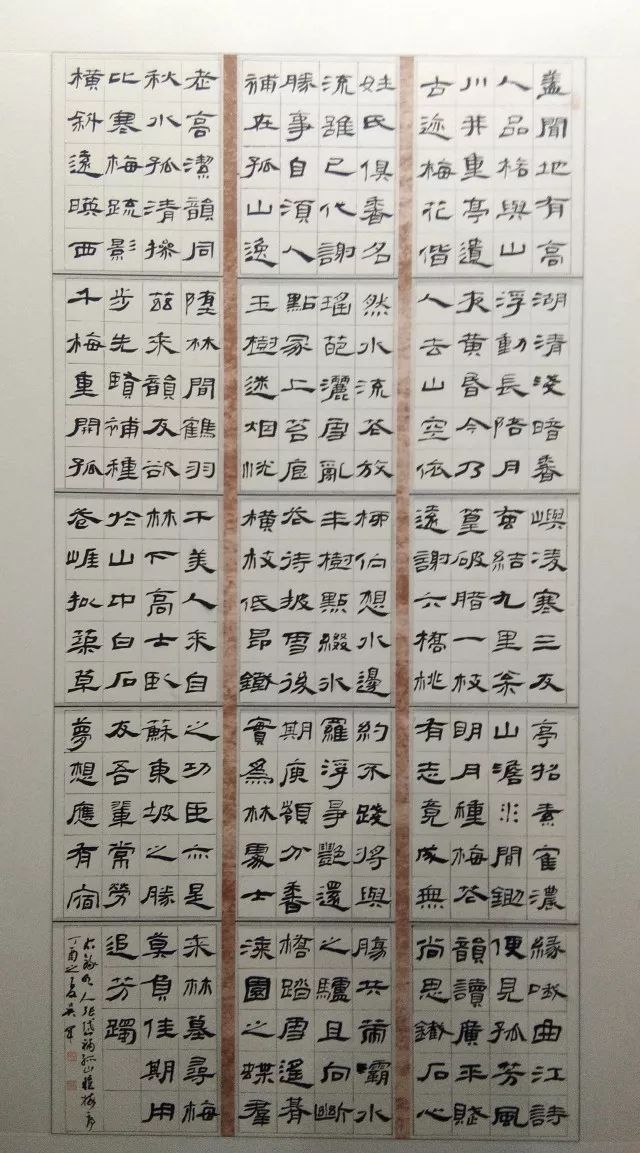 蓋聞地有高
人品格與山
川并重亭遺
古迹梅花偕
姓氏俱香名
流雖已代謝
勝事自須人
補在孤山逸
老高潔韻同
秋水孤清操
比寒梅疏影
橫斜遠暎西
湖清淺暗香
浮動長陪月
夜黃昏今乃
人去山空依
然水流花放
瑤葩灑雪亂
點冢上苔痕
玉樹迷烟恍
墮林間鶴羽
茲來韻友欲
步先賢補種
千梅重開孤
嶼凌寒三友
蚤結九里松
篁破臘一枝
遠謝六橋桃
柳佇想水邊
半樹點綴冰
花待披雪後
橫枝低昂鐵
干美人來自
林下高士臥
於山中白石
卷崖拟築草
亭招素隺濃
山澹水閒鋤
明月種梅花
有志竟成無
約不踐將與
羅浮爭艷還
期庾嶺分香
實為林處士
之功臣亦是
蘇東坡之勝
友吾輩常勞
夢想應有宿
緣哦曲江詩
便見孤芳風
韻讀廣平賦
尚思鐵石心
腸共策灞水
之驢且向斷
橋踏雪遙瞻
漆園之蝶群
來林墓尋梅
莫負佳期用
追芳躅
右錄明人張岱補孤山種梅序
丁酉之夏吳軍